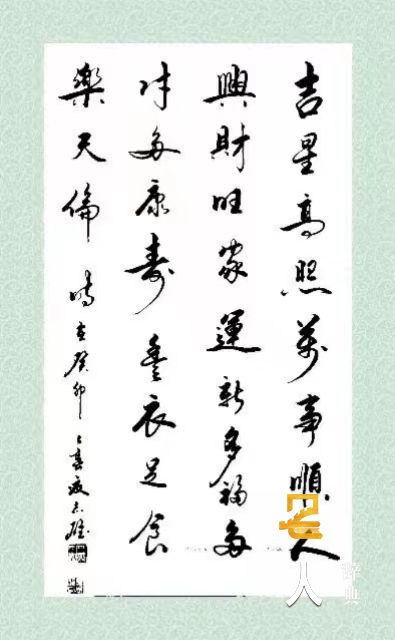 吉星高照萬事順人
興財旺家運新多福多
財多康壽豐衣足食
樂天倫 時癸卯之春
名人辞典